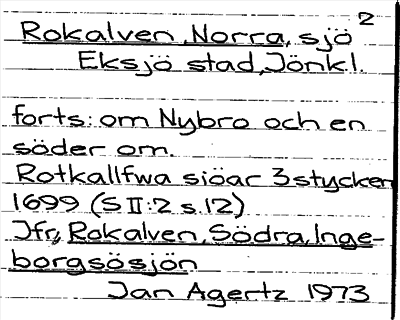 2
Rokalven, Norra, sjö
Eksjö stad, Jönk.l.
forts: om Nybro och en
söder om.
Rotkallfwa siöar 3 stycken
1699 (S II:2 s.12)
Jfr, Rokalven, Södra, Inge-
borgsösjön
Jan Agertz 1973